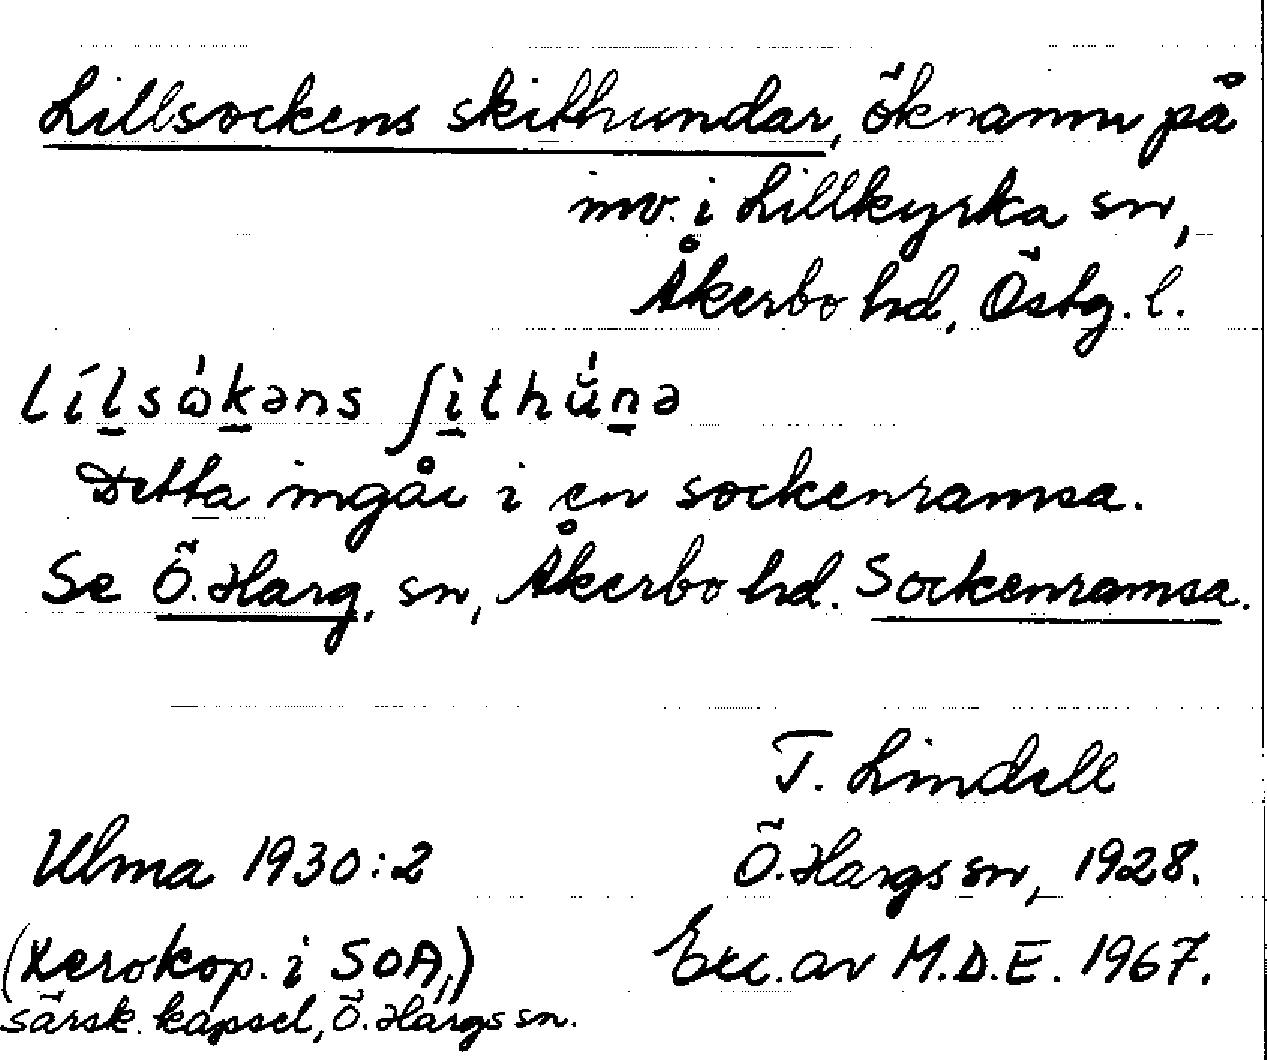 Lillsockens skithundar, öknamn på
inv. i Lillkyrka sn,
Åkerbo hd, Östg. l.
lílsὼkəns ʃìthǘnə
Detta ingår i en sockenramsa.
Se Ö. Harg, sn, Åkerbo hd. Sockenramsa.
T. Lindell
Ulma 1930:2 Ö. Hargs sn, 1928.
(Xerokop. i SOA,) Exc. av M.D.E. 1967.
särsk. kapsel, Ö. Hargs sn.